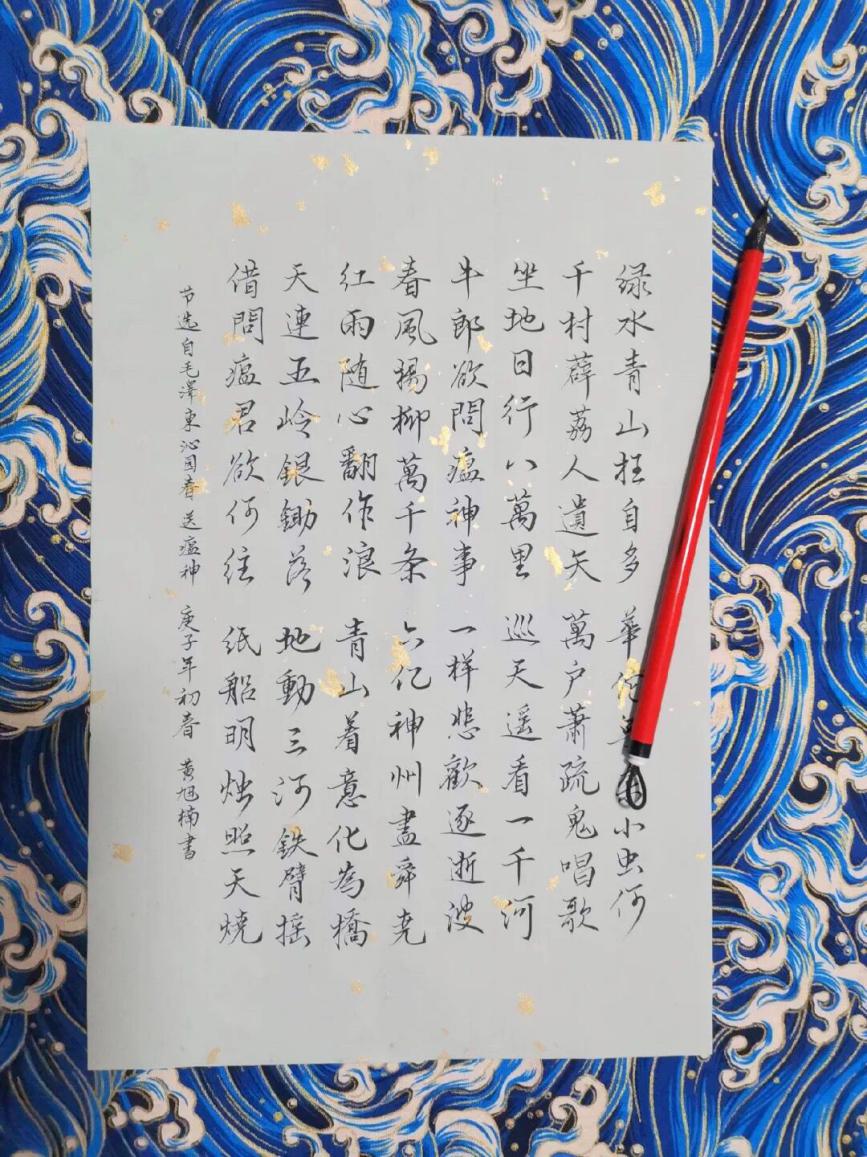 绿水青山枉自多 華小虫何
千村薜荔人遺矢 萬户蕭疏鬼唱歌
坐地日行八萬里 巡天遥看一千河
牛郎欲問瘟神事 一样悲歡逐逝波
春風楊柳萬千条 六亿神州盡舜尭
红雨随心翻作浪 青山着意化為橋
天連五岭銀鋤落 地動三河鉄臂摇
借問瘟君欲何往 纸船明烛照天燒
节选自毛澤東沁园春送瘟神 庚子年初春 黄旭楠書